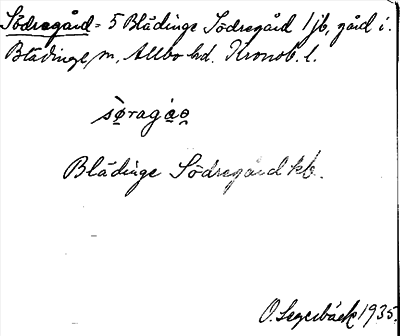 Södregård = 5 Blädinge Södregård 1 jb, gård i.
Blädinge, m, Allbo hd. Kronob. l.
Blädinge Södregård kb.
O. Segerbäck 1935.